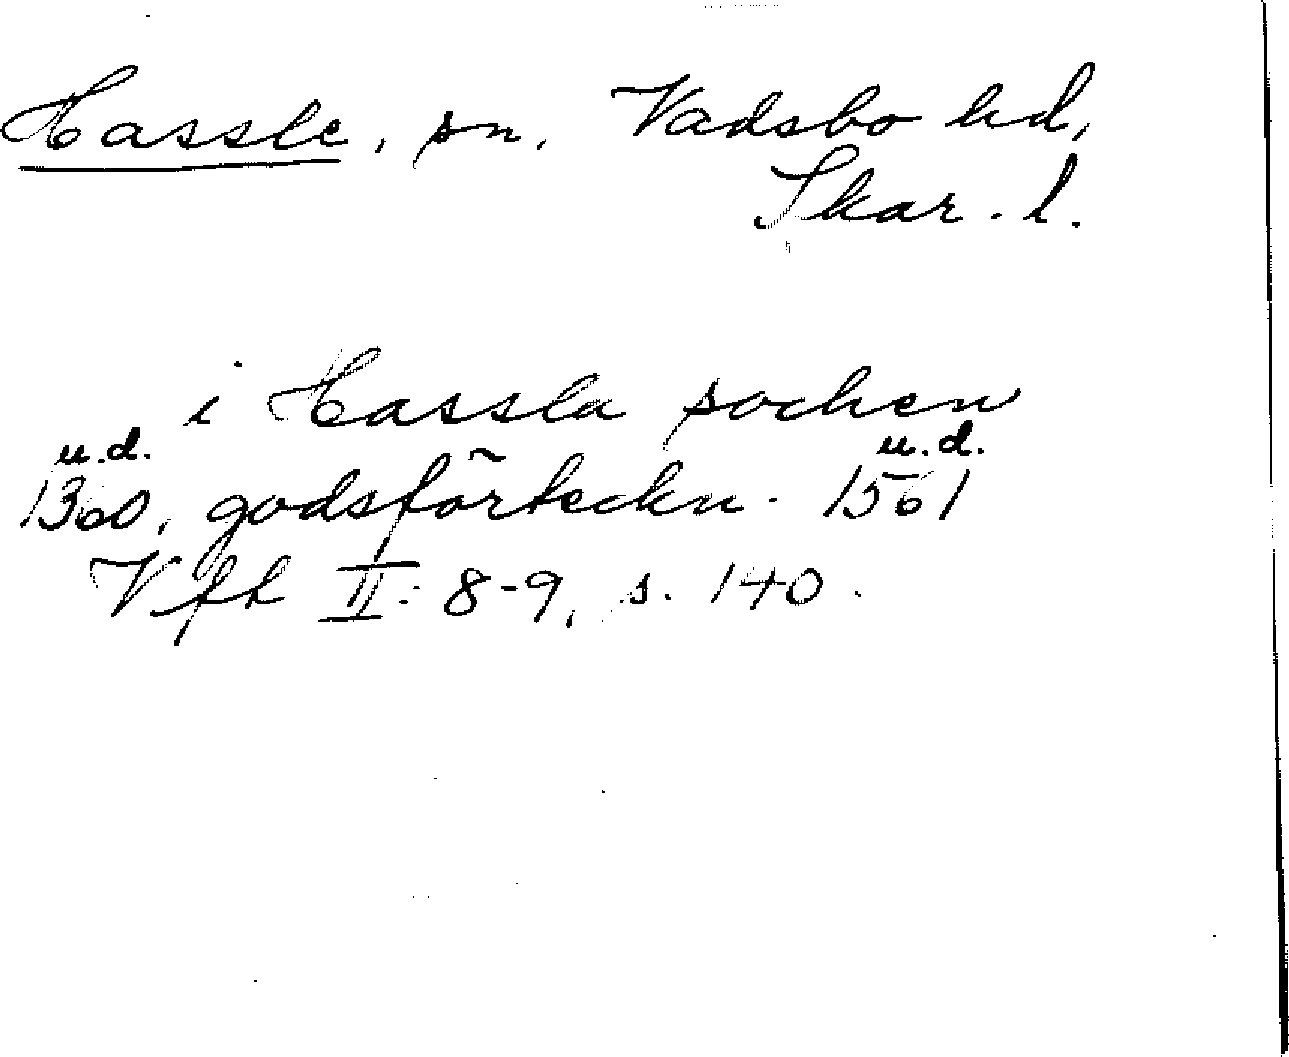 Hassle, sn, Vadsbo hd,
Skar. l.
i Hassla sochen
u.d. u.d.
1360, godsförteckn. 1561
Vfh II: 8-9, s. 140.